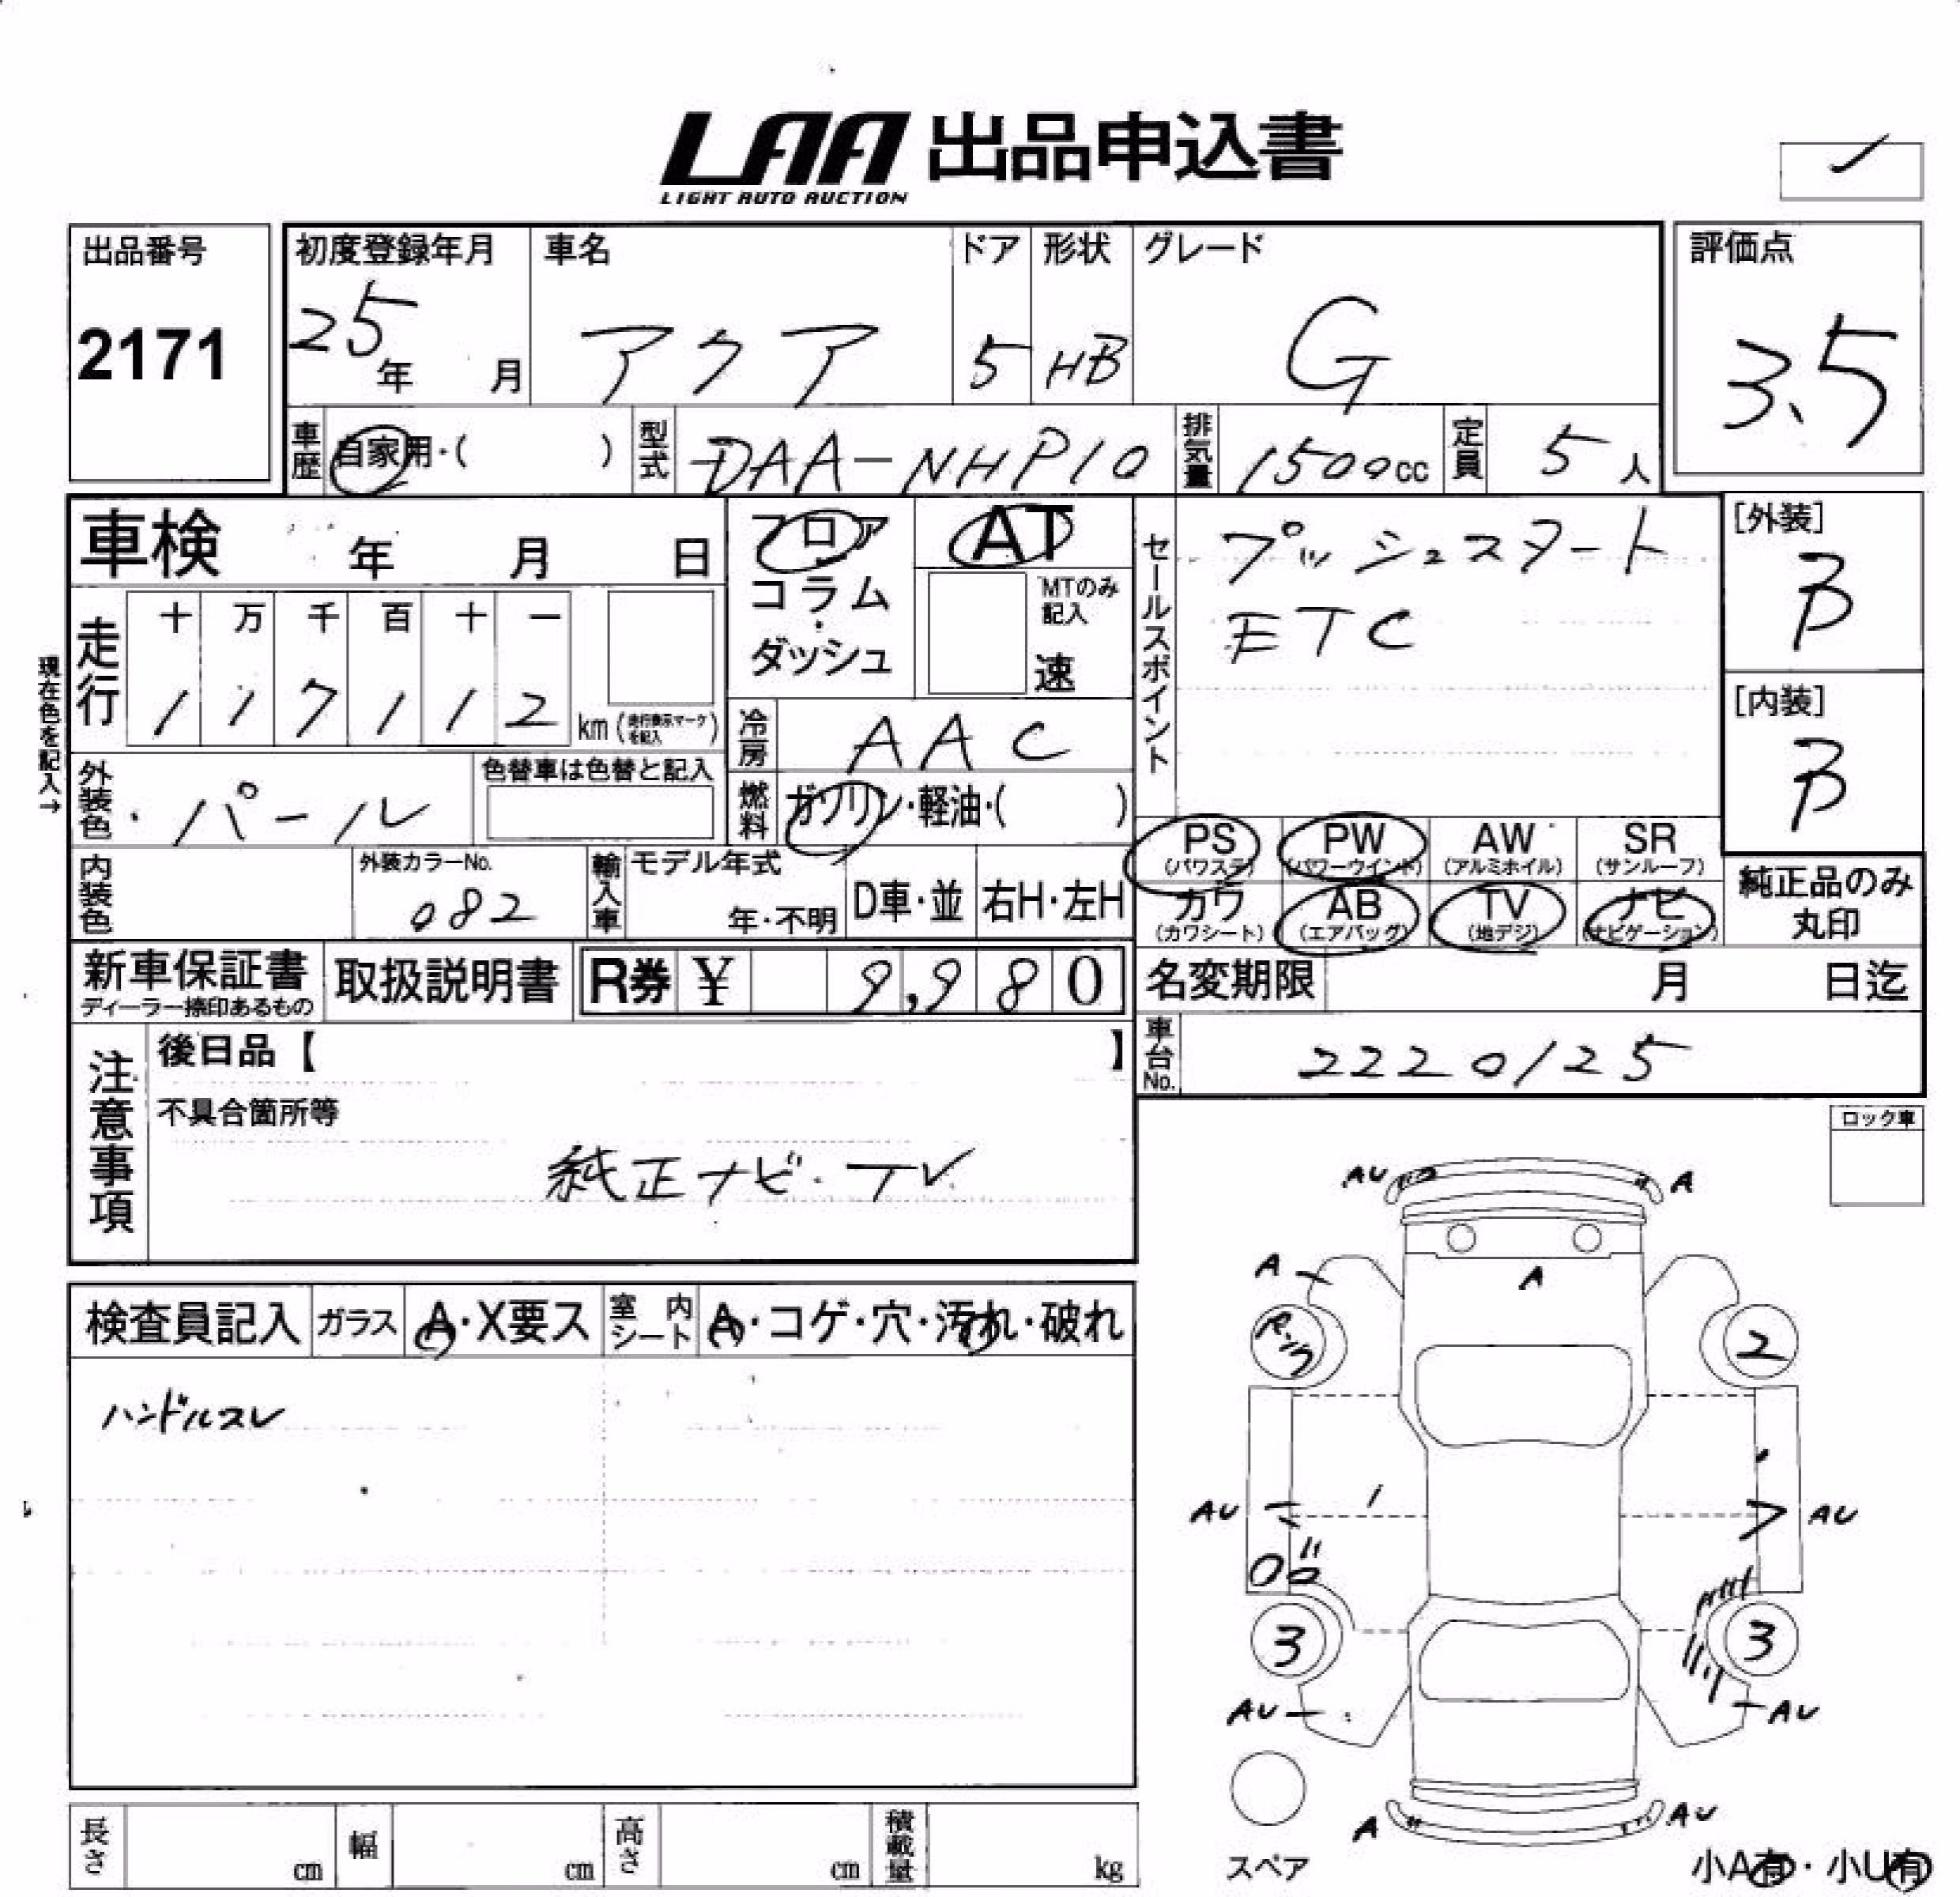 LAA 出品申込書
LIGHT AUTO AUCTION
出品番号
2171
初度登録年月
25年 月
車名
アクア
ドア
5
形状
HB
グレード
G
評価点
3.5
車歴
自家用・( )
型式
DAA-NHP10
排気量
1500cc
定員
5人
車検 年 月 日
フロア
コラム
・
ダッシュ
AT
MTのみ
記入
速
セールスポイント
プッシュスタート
ETC
[外装]
B
[内装]
B
現在色を記入→
走行
十 万 千 百 十 一
1 1 7 1 1 2 km (走行表示マークを記入)
冷房
AAC
外装色
パール
色替車は色替と記入
燃料
ガソリン・軽油・( )
PS
(パワステ)
PW
(パワーウインド)
AW
(アルミホイル)
SR
(サンルーフ)
カワ
(カワシート)
AB
(エアバッグ)
TV
(地デジ)
ナビ
(ナビゲーション)
純正品のみ
丸印
内装色
外装カラーNo.
082
輸入車
モデル年式
年・不明
D車・並
右H・左H
新車保証書
ディーラー捺印あるもの
取扱説明書
R券 ¥ 9,980
名変期限 月 日迄
車台No.
2220125
注意事項
後日品【 】
不具合箇所等
純正ナビ・TV
ロック車
検査員記入
ガラス
A・X要ス
室内シート
A・コゲ・穴・汚れ・破れ
ハンドルスレ
AU
A
A
A
2
AU
AU
3
3
AU
AU
A
AU
スペア
小A有・小U有
長さ cm
幅 cm
高さ cm
積載量 kg